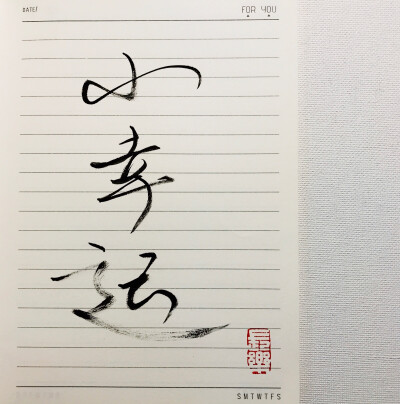 DATE/
FOR YOU
小幸运
長樂
SMTWTFS